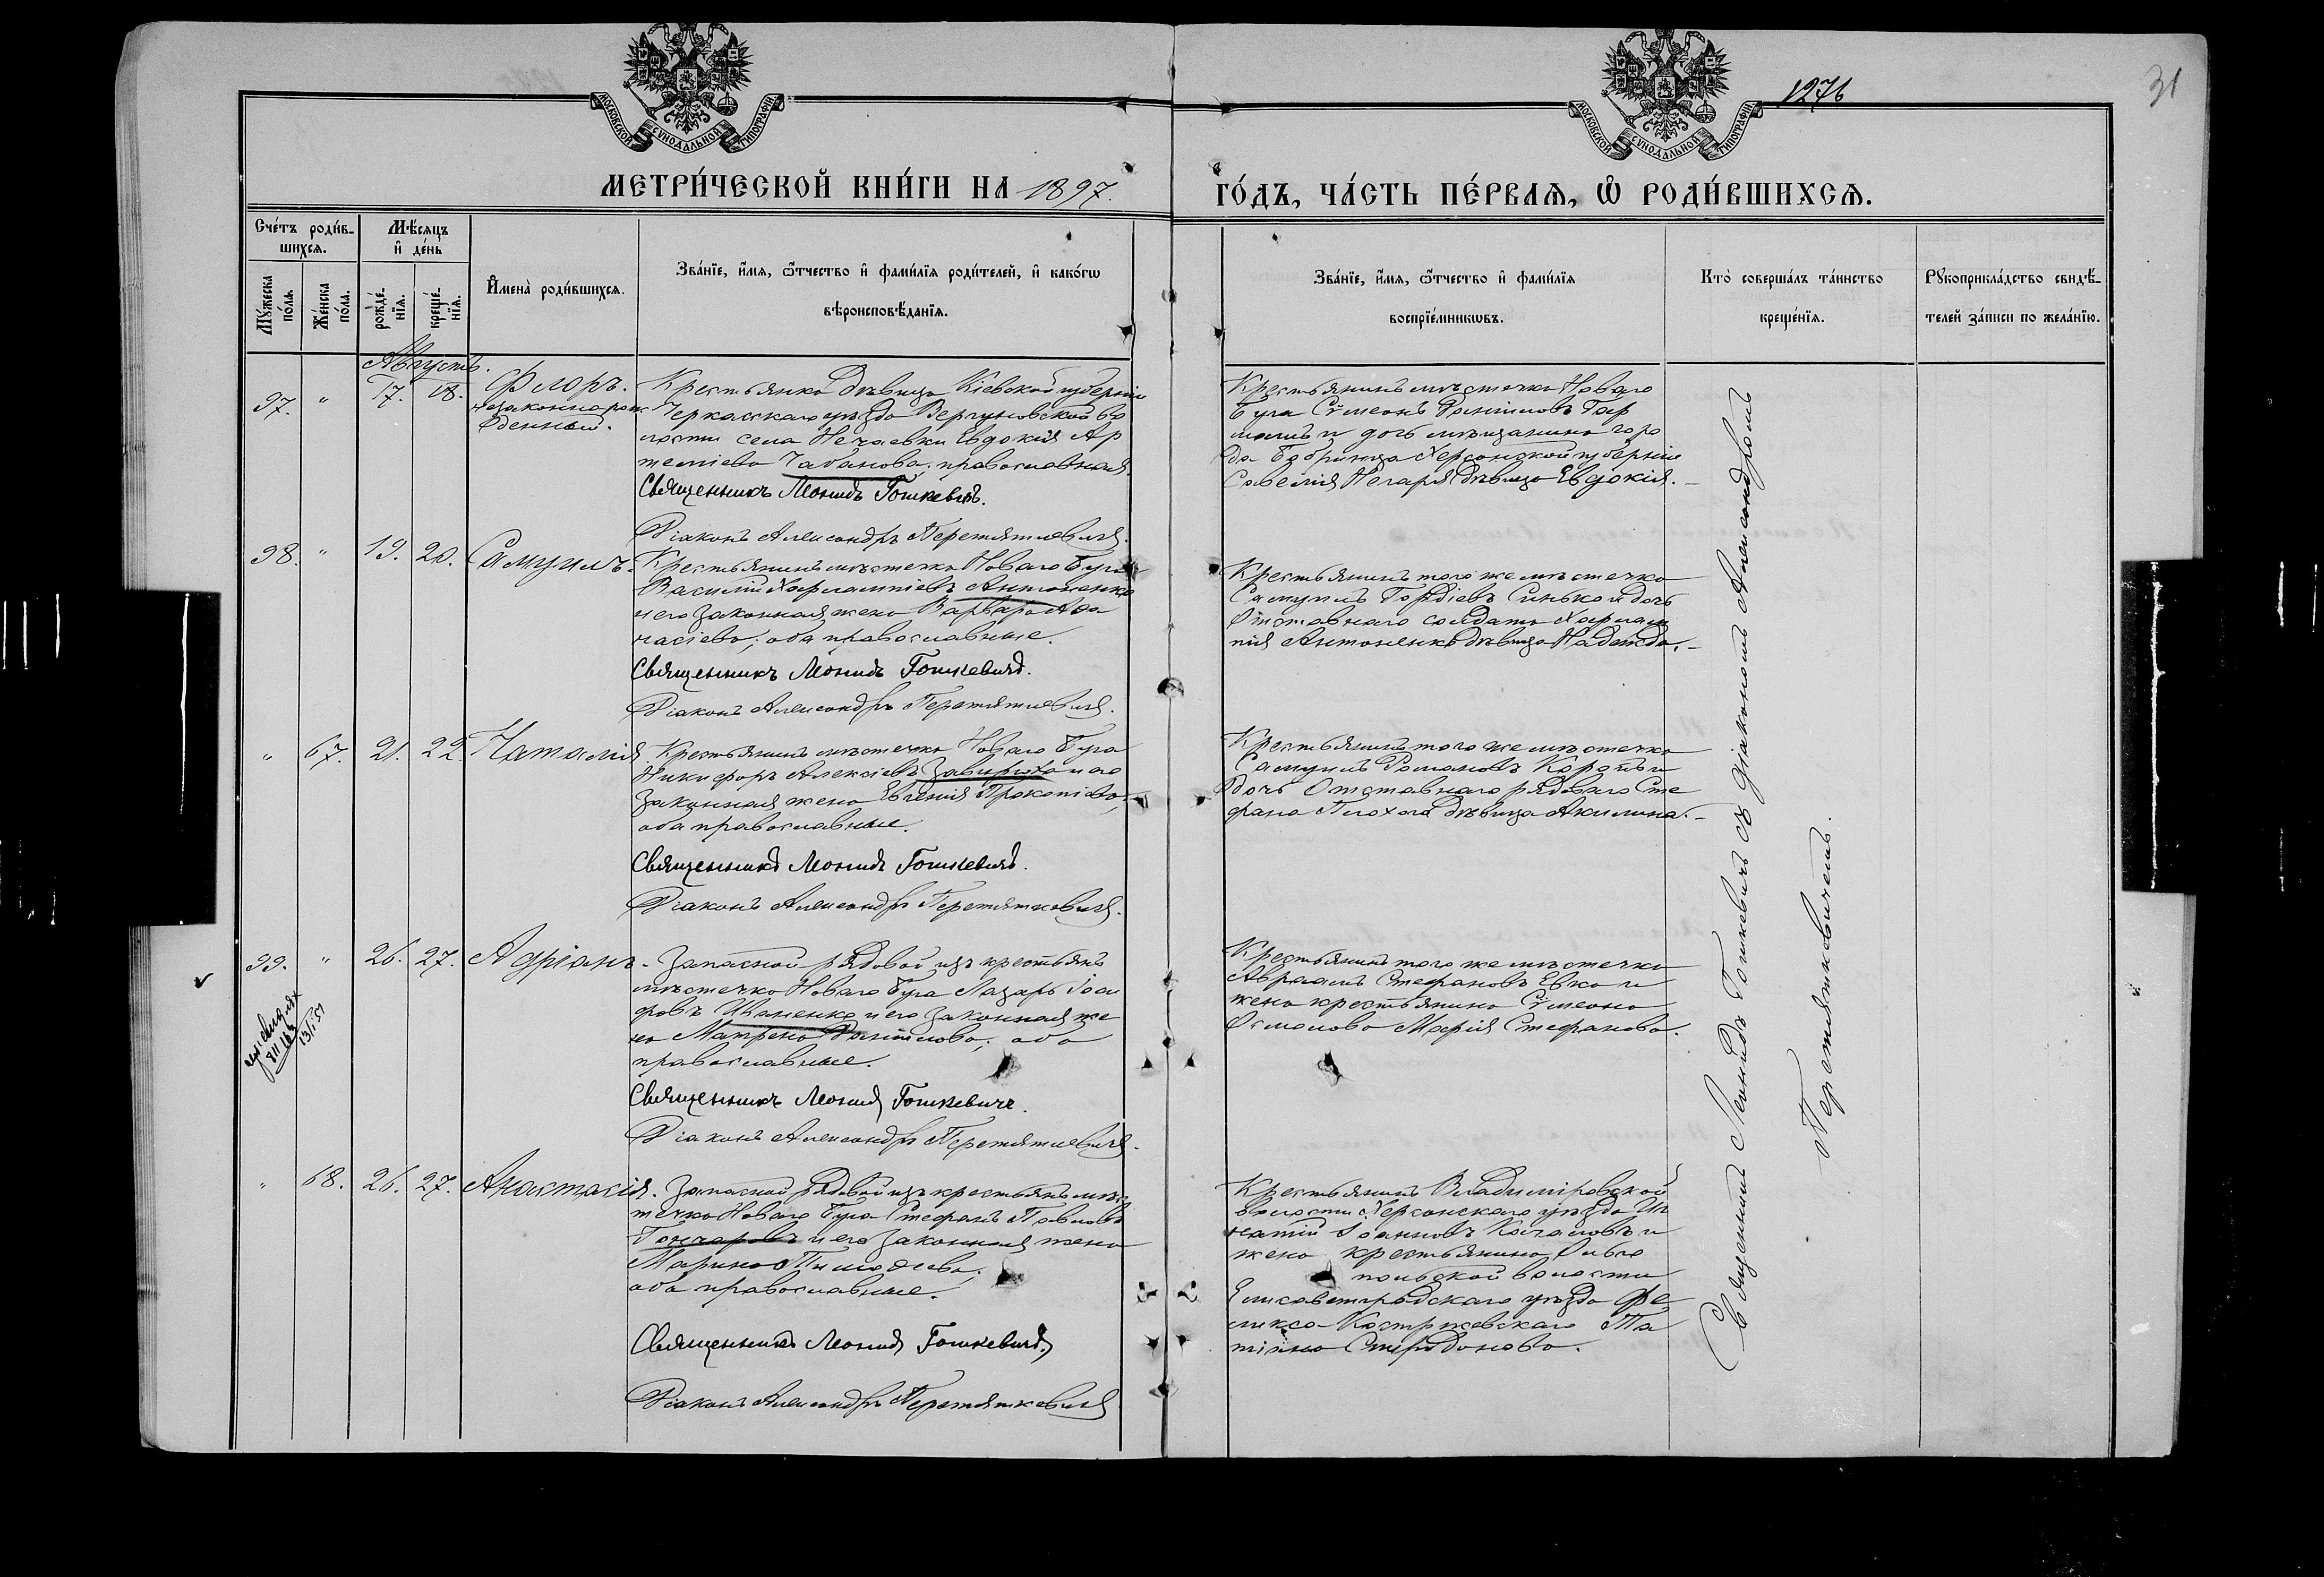 1276
31
МОСКОВСКОЙ СУНОДАЛЬНОЙ ТИПОГРАФІИ
МОСКОВСКОЙ СУНОДАЛЬНОЙ ТИПОГРАФІИ
МЕТРИ́ЧЕСКОЙ КНИ́ГИ НА 1897.
ГО́ДЪ, ЧА́СТЬ ПЕ́РВАѦ, Ѡ҆ РОДИ́ВШИХСѦ.
Сче́тъ роди́в-
шихсѧ.
Мꙋ́жеска
по́лꙋ.
Же́нска
по́ла.
Мѣ́сѧцъ
и҆ де́нь
рожде́-
нїѧ.
креще́-
нїѧ.
И҆мена̀ роди́вшихсѧ.
Зва́нїе, и҆́мѧ, ѻ҆́тчество и҆ фами́лїѧ роди́телей, и҆ како́гѡ
вѣроисповѣ́данїѧ.
Зва́нїе, и҆́мѧ, ѻ҆́тчество и҆ фами́лїѧ
воспрїе́мникѡвъ.
Кто̀ соверша́лъ та́инство
креще́нїѧ.
Рꙋкоприкла́дство свидѣ́-
телей за́писи по жела́нїю.
Августъ.
97. " 17. 18. Флоръ.
незаконнорож
денный.
Крестьянка дѣвица Кіевской губерніи
Черкасскаго уѣзда Вергуновской во
лости села Нечаевки Евдокія Ар
теміева Чабанова, православная
Священникъ Леонидъ Гошкевичъ.
Діаконъ Александръ Перетятковичъ.
Крестьянинъ мѣстечка Новаго
Буга Сѵмеонъ Даніиловъ Гар
машъ и дочь мѣщанина горо
да Бобринца Херсонской губерніи
Савелія Негаря дѣвица Евдокія.
98. " 19. 20. Самуилъ.
Крестьянинъ мѣстечка Новаго Буга
Василій Харлампіевъ Антоненко
и его законная жена Варвара Афа
насіева, оба православные.
Священникъ Леонидъ Гошкевичъ.
Діаконъ Александръ Перетятковичъ.
Крестьянинъ того же мѣстечка
Самуилъ Гордіевъ Синько и дочь
Отставнаго солдата Харлам
пія Антоненко дѣвица Надежда.
" 67. 21. 22. Наталія.
Крестьянинъ мѣстечка Новаго Буга
Никифоръ Алексіевъ Завирюха и его
законная жена Евгенія Прокопіева,
оба православные.
Священникъ Леонидъ Гошкевичъ.
Діаконъ Александръ Перетятковичъ.
Крестьянинъ того же мѣстечка
Самуилъ Романовъ и
дочь Отставнаго рядоваго Сте
фана Плохога дѣвица Акилина.
99. " 26. 27. Адріанъ.
Запасной рядовой изъ крестьянъ
мѣстечка Новаго Буга Лазарь Іоси
фовъ Иваненко и его законная же
на Матрена Даніилова, оба
православные.
Священникъ Леонидъ Гошкевичъ.
Діаконъ Александръ Перетятковичъ.
Крестьянинъ того же мѣстечка
Авраамъ Стефановъ Евко и
жена крестьянина Сѵмеона
Осмолова Марія Стефанова.
13/I-51
" 68. 26. 27. Анастасія.
Запасной рядовой изъ крестьянъ мѣс
течка Новаго Буга Стефанъ Павловъ
Гончаровъ и его законная жена
Марина Тимофеева,
оба православные.
Священникъ Леонидъ Гошкевичъ.
Діаконъ Александръ Перетятковичъ
Крестьянинъ Владиміровской
волости Херсонскаго уѣзда Иг
натій Іоанновъ Качаловъ и
жена крестьянина Ольго
польской волости
Елисаветградскаго уѣзда Фе
ликса Костржевскаго Та
тіана Спиридонова.
Священникъ Леонидъ Гошкевичъ съ діакономъ Александромъ
Перетятковичемъ.